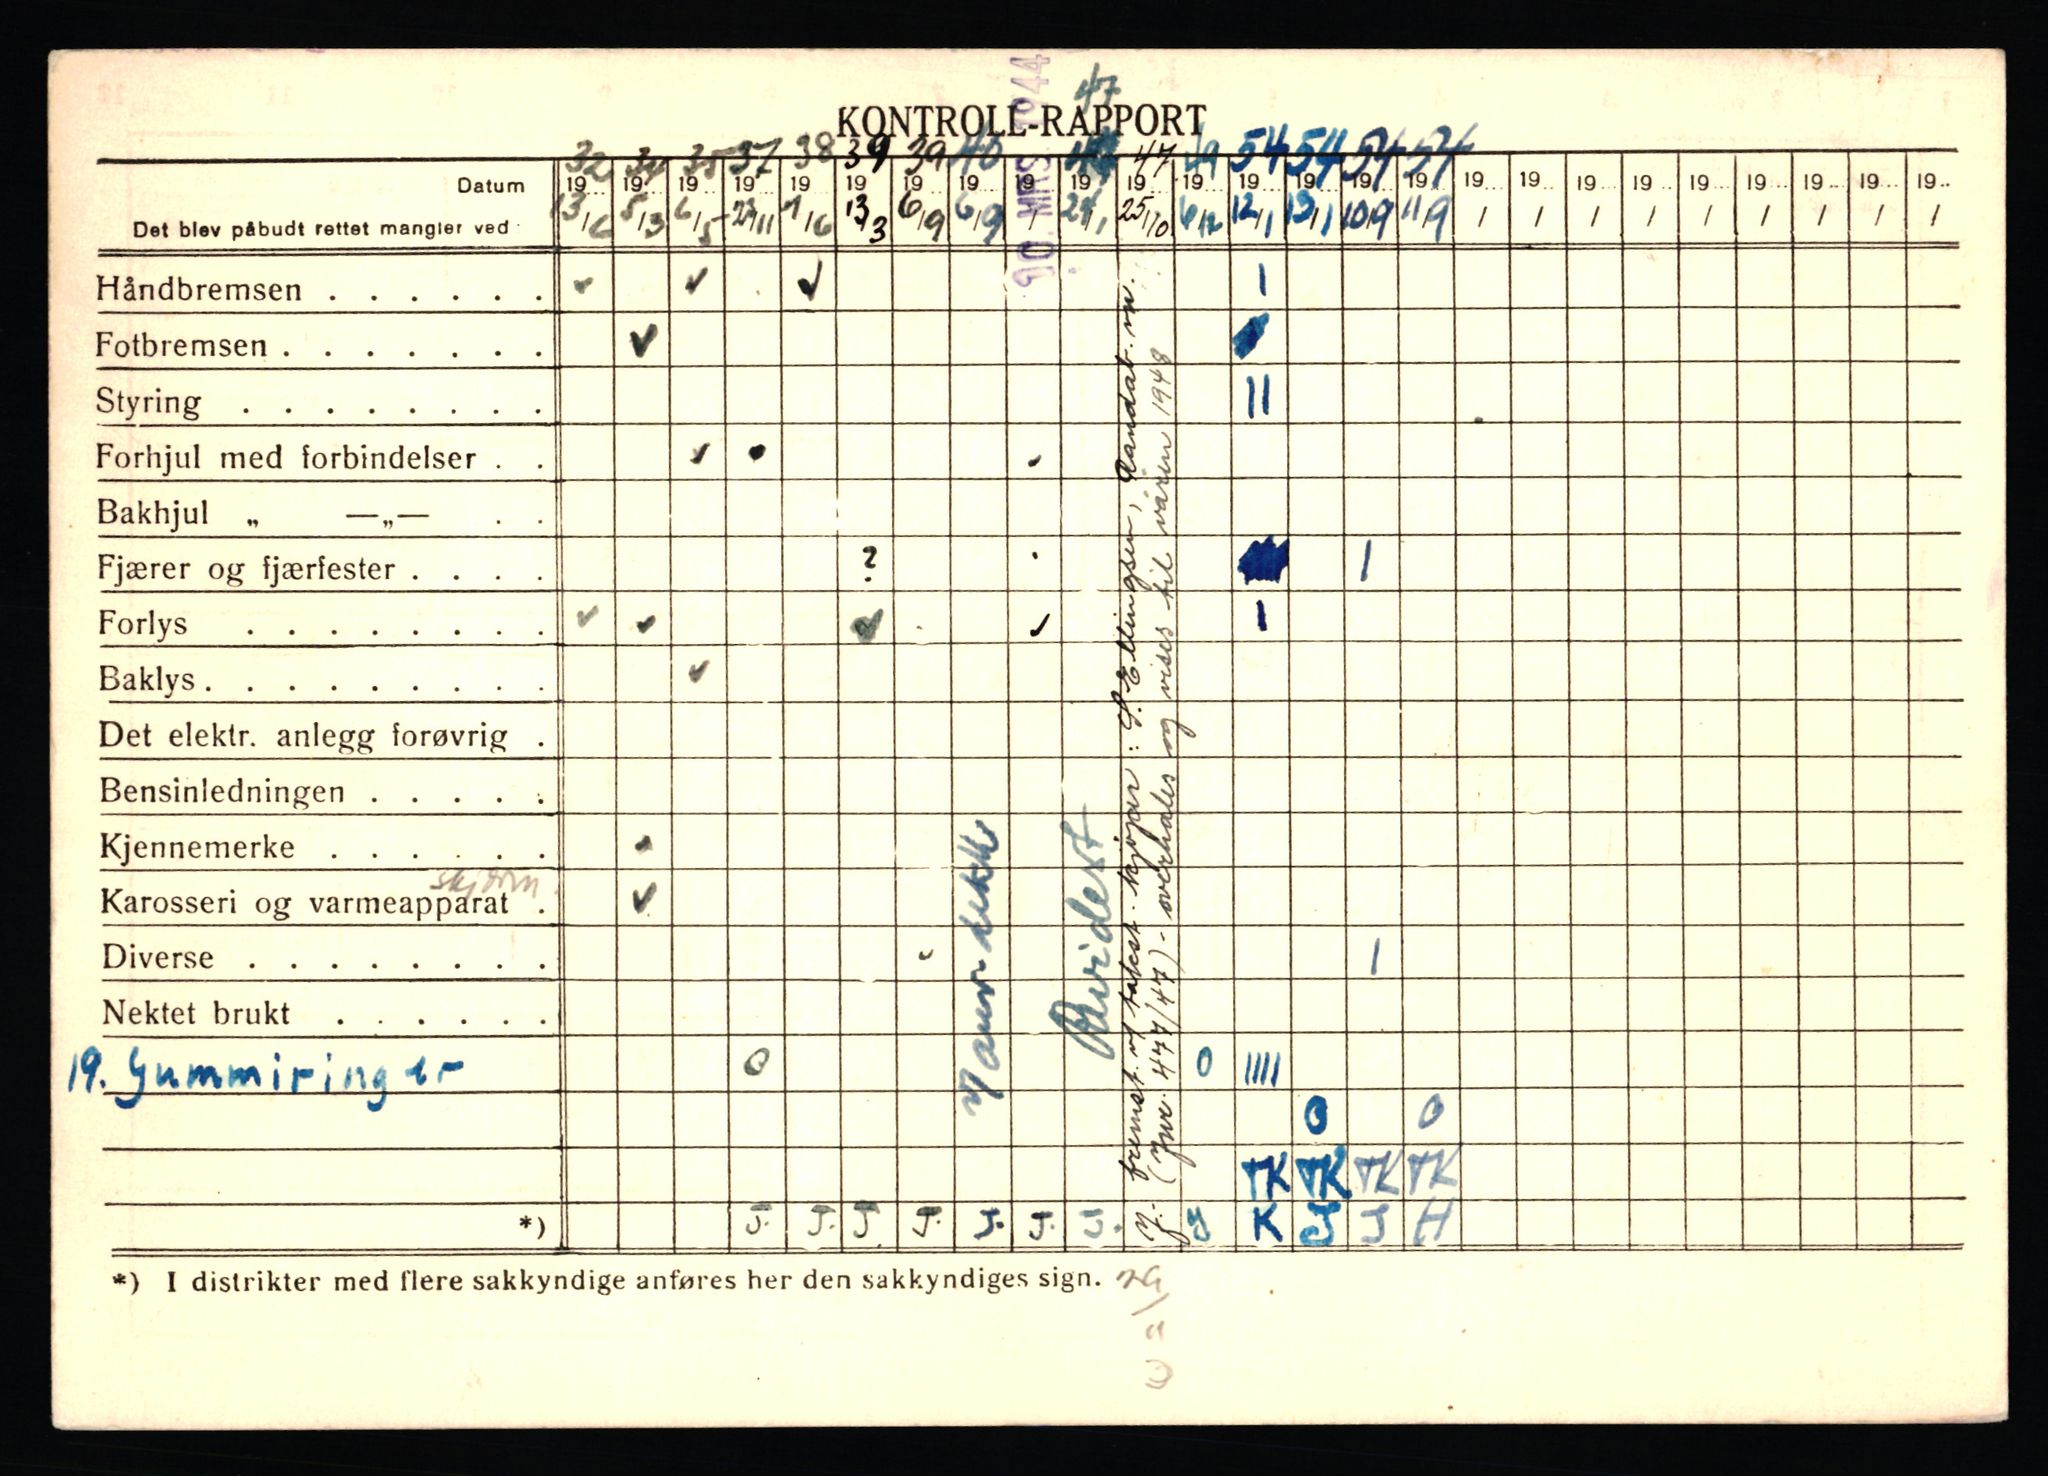 KONTROLL-RAPPORT
47
32 34 35 37 38 39 39 40 47 49 54 54 54 54
Datum 19 19 19 19 19 19 19 19 19 19 19 19 19 19 19 19 19 19 19 19 19 19 19 19 19
Det blev påbudt rettet mangler ved 13/6 5/3 6/5 23/11 7/6 13/3 6/9 6/9 / 25/10 6/12 12/1 13/1 10/9 11/9 / / / / / / / / /
10. MRS. 1944
Håndbremsen . . . . . . ✓ ✓ ✓ I
Fotbremsen . . . . . . . ✓
Styring . . . . . . . . II
Forhjul med forbindelser . . ✓
Bakhjul „ —„— . .
Fjærer og fjærfester . . . . ? I
Forlys . . . . . . . . ✓ ✓ ✓ ✓ I
Baklys . . . . . . . . . ✓
Det elektr. anlegg forøvrig .
Bensinledningen . . . . .
Kjennemerke . . . . . .
skjerm
Karosseri og varmeapparat . ✓
Diverse . . . . . . . . I
Nektet brukt . . . . .
19. Gummiringer O O IIII
O O
TK TK TK TK
*) J. J. J J. J. J. J. Y K J J H
Revidert
J.- fremst. v/ takst. kjøper: S. Ellingsen, Sandat. m.
(Jnr. 477/47) - overhales og vises til våren 1948
*) I distrikter med flere sakkyndige anføres her den sakkyndiges sign.